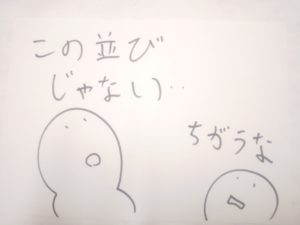 この並び
じゃない‥
ちがうな